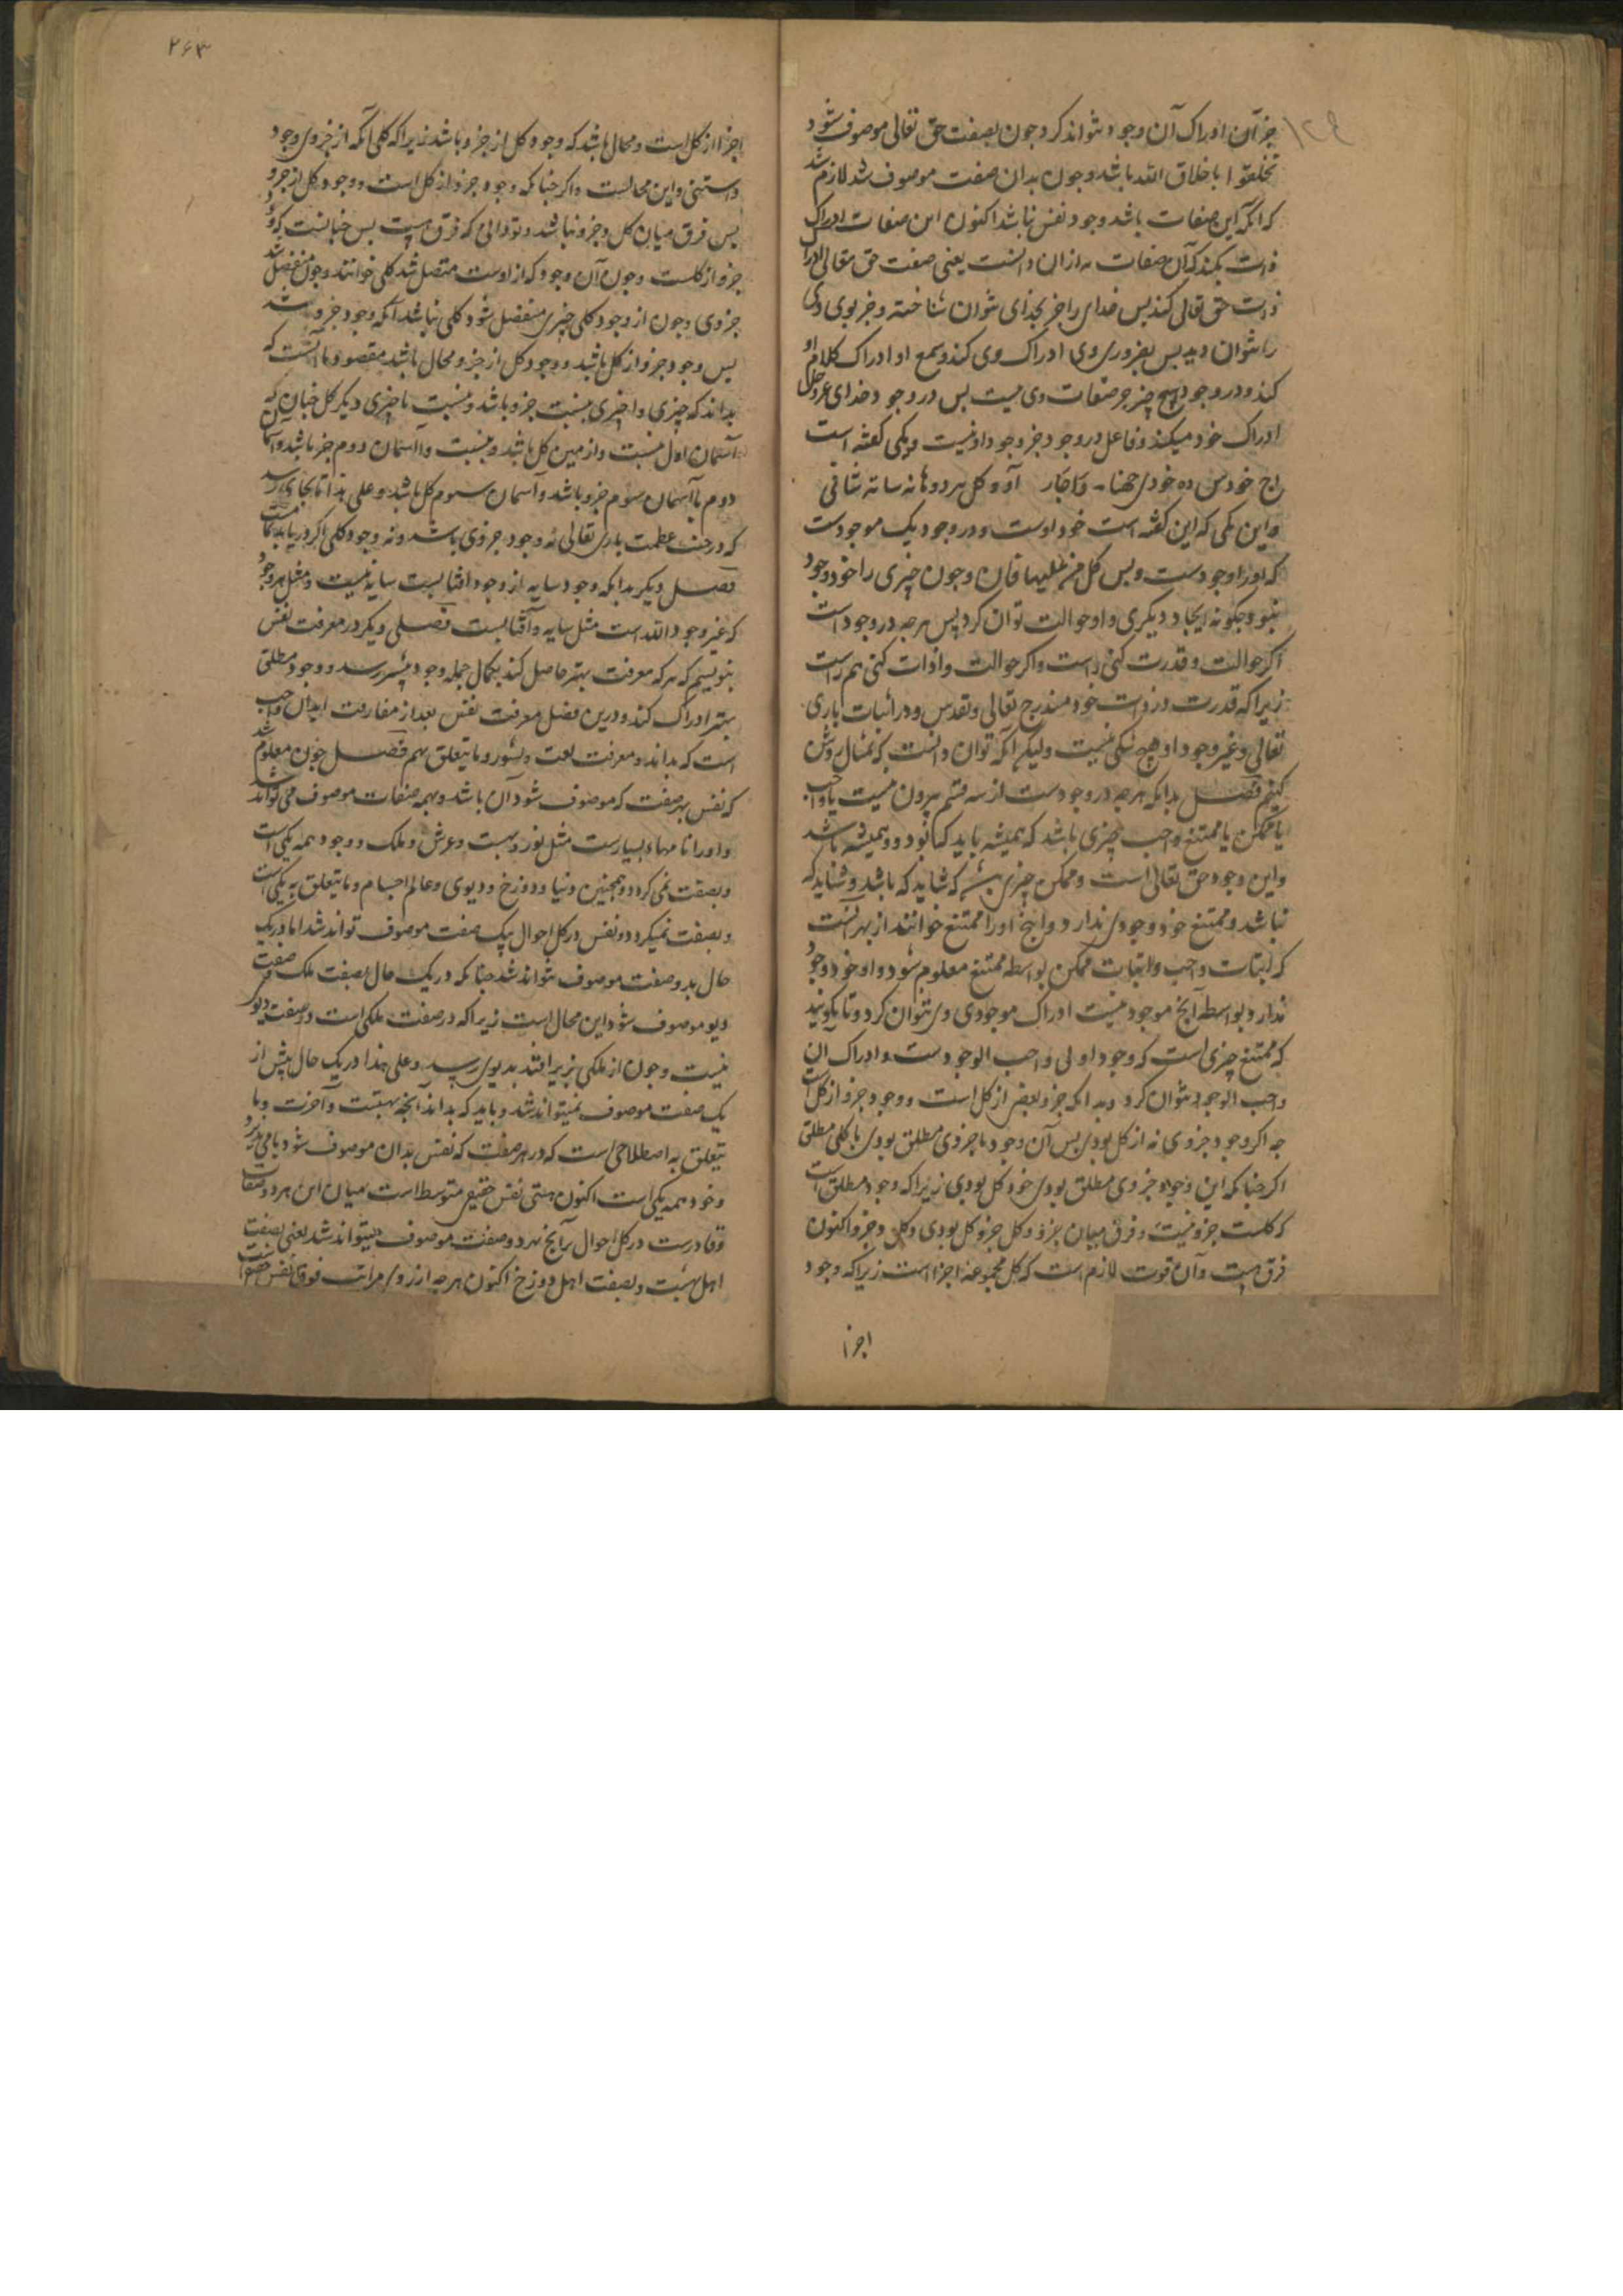 جز آن ادراک آن وجود نتواند کرد وجون بصفت حق تعالی موصوف شود
تخلقوا باخلاق الله باشد وجون بدان صفت موصوف شد لازم شد
که آنکه این صفات باشد وجود نفس نباشد اکنون این صفات ادراک
ذات بکند که آن صفات از ان دانست یعنی صفت حق تعالی ادراک
ذات حق تعالی کند بس خدای را جز بخدای نتوان شناخت وجز بوی وی
را نتوان دید بس بضرورت وی ادراک وی کند وبسمع او ادراک کلام او
کند ودر وجود هیچ چیز جز صفات وی نیست بس در وجود خدای عز وجل
ادراک خود میکند وفاعل در وجود جز وجود او نیست ویکی کفته است
خود
واین یکی که این کفته است خود اوست ودر وجود یک موجودست
که اورا وجودست وبس کل من علیها فان وجون چیزی را خود وجود
نبود جکونه ایجاد دیکری واو حوالت توان کرد پس هرجه در وجود است
اکر حوالت وقدرت کنی راست واکر حوالت وادات کنی هم راست
زیراکه قدرت در ذات خود مندرج تعالی وتقدس ودر اثبات باری
تعالی وغیر وجود او هیچ شکی نیست ولیکن آنکه توان دانست که بمثال روشن
کنیم فصل بدانکه هرجه در وجودست از سه قسم بیرون نیست یا واجب
یا ممکن یا ممتنع واجب چیزی باشد که همیشه باید که بود وهمیشه باشد
واین وجود حق تعالی است وممکن چیزی که شاید که باشد وشاید که
نباشد وممتنع خود وجودی ندارد وانچ اورا ممتنع خوانند از بهر آنست
که اثبات واجب واثبات ممکن بواسطه ممتنع معلوم شود واو خود وجود
ندارد وبواسطه آنچ موجود نیست ادراک موجودی وی نتوان کرد وتا بکویند
که ممتنع چیزی است که وجود اولی واجب الوجودست وادراک آن
واجب الوجود نتوان کرد وبدانکه جزو بعض از کل است ووجود جزو از کل است
جه اکر وجود جزوی نه از کل بودی بس آن وجود یا جزوی مطلق بودی یا کلی مطلق
اکر جنانکه این وجود جزوی مطلق بودی خود کل بودی زیراکه وجود مطلق است
که کلست جزو نیست وفرق میان جزو وکل جزو کل بودی وکل وجزو اکنون
فرق هست وآن قوت لازم است که کل مجموعه اجزا است زیراکه وجود
اجزا
۲۶۳
اجزا از کل است ومحال باشد که وجود کل از جزو باشد زیراکه کلی آنکه از جزوی وجود
داستنی واین محالست واکر جنانکه وجود جزو از کل است ووجود کل از جزو
بس فرق میان کل وجزو نباشد وتو دانی که فرق هست بس جنانست که وجود
جزو از کلست وجون آن وجود که از اوست متصل شد کلی خوانند وجون منفصل شد
جزوی وجون از وجود کلی چیزی منفصل شود کلی نباشد آنکه وجود جزو باشد
بس وجود جزو از کل باشد ووجود کل از جزو محال باشد مقصود ما آنست که
بداند که چیزی واچیزی بنسبت جزو باشد وبنسبت با چیزی دیکر کل جنان که
آسمان اول بنسبت وا زمین کل باشد وبنسبت وا آسمان دوم جزو باشد وآسمان
دوم با آسمان سوم جزو باشد وآسمان سوم کل باشد وعلی هذا تا بجای رسد
که در جنب عظمت باری تعالی نه وجود جزوی باشد ونه وجود کلی اکر دریابد
فصل دیکر بدانکه وجود سایه از وجود آفتابست سایه نیست ومثل هر وجود
که غیر وجود الله است مثل سایه وآفتابست فصلی دیکر در معرفت نفس
بنویسیم که هرکه معرفت بهتر حاصل کند بکمال جمله وجود بیشتر رسد ووجود مطلق
بهتر ادراک کند ودرین فصل معرفت نفس بعد از مفارقت ابدان واجب
است که بداند ومعرفت بعث ونشور وما یتعلق بهم فصل جون معلوم شد
که نفس بهر صفت که موصوف شود آن باشد وبهمه صفات موصوف می تواند شد
واورا نامهاء بسیارست مثل نور وبهشت وعرش وملک ووجود همه یکی است
وبصفت نمی کردد وهمجنین دنیا ودوزخ ودیوی وعالم اجسام وما یتعلق به یکی است
وبصفت نمیکردد ونفس در کل احوال بیک صفت موصوف تواند شد اما در یک
حال بدو صفت موصوف نتواند شد جنانکه در یک حال بصفت ملک وصفت
دیو موصوف شود این محال است زیراکه در صفت ملکی است در صفت دیو
نیست وجون از ملکی بزیر افتد بدیوی رسد وعلی هذا در یک حال بیش از
یک صفت موصوف نمیتواند شد وباید که بداند آنچه بهشتست وآخرت وما
یتعلق به اصطلاحی است که در هر صفت که نفس بدان موصوف شود نامی پذیرد
وخود همه یکی است اکنون هستی نفس حقیقی متوسط است میان این هردو صفات
وقادرست در کل احوال بر آنچ بهر دو صفت موصوف میتواند شد یعنی بصفت
اهل بهشت وبصفت اهل دوزخ اکنون هرجه از روی مراتب فوق نفس